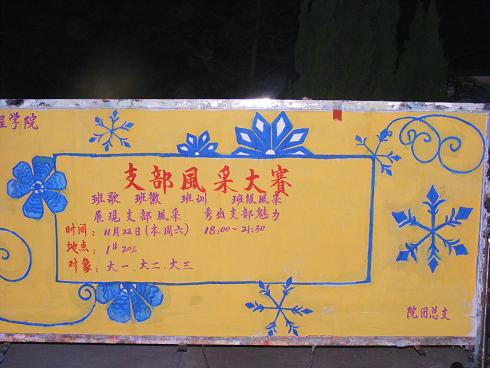 程学院
支部風采大赛
班歌 班徽 班训 班级风采
展现支部风采 秀出支部魅力
时间: 11月22日(本周六) 18:00~21:30
地点: 1#202
对象: 大一、大二、大三
院团总支